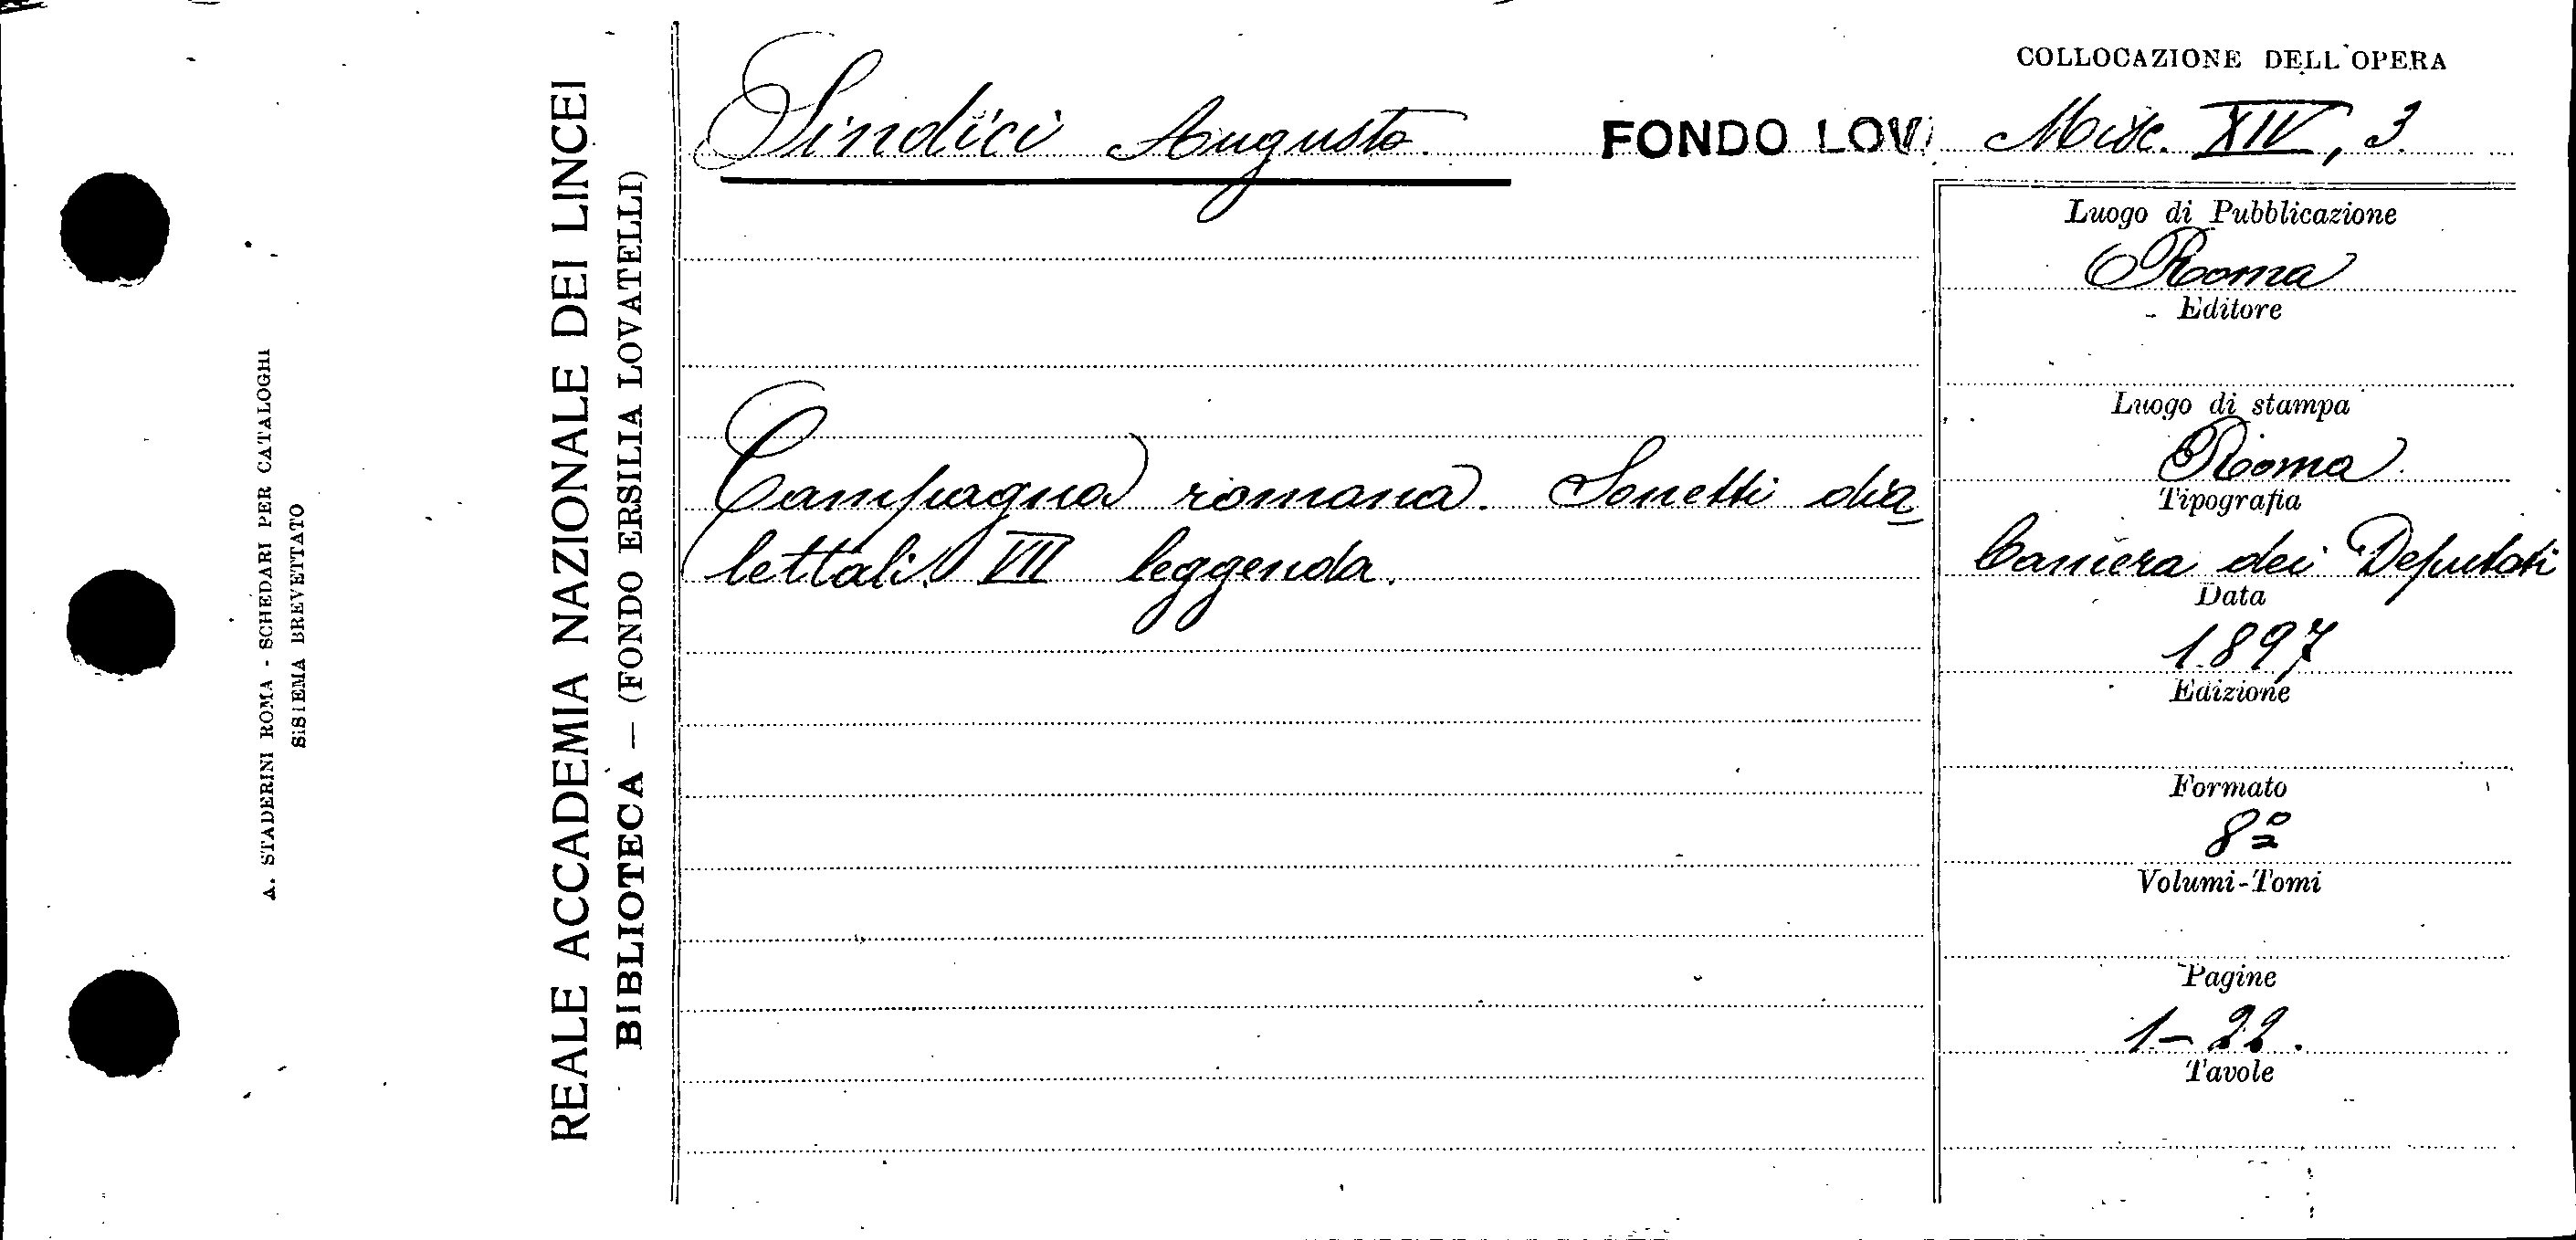 A. STADERINI ROMA - SCHEDARI PER CATALOGHI
SISTEMA BREVETTATO
REALE ACCADEMIA NAZIONALE DEI LINCEI
BIBLIOTECA — (FONDO ERSILIA LOVATELLI)
COLLOCAZIONE DELL'OPERA
Sindici Augusto FONDO LOV Misc. XIV, 3.
Campagna romana. Sonetti dia
lettali. VII leggenda.
Luogo di Pubblicazione
Roma
Editore
Luogo di stampa
Roma
Tipografia
Camera dei Deputati
Data
1897
Edizione
Formato
8º
Volumi-Tomi
Pagine
1-22.
Tavole